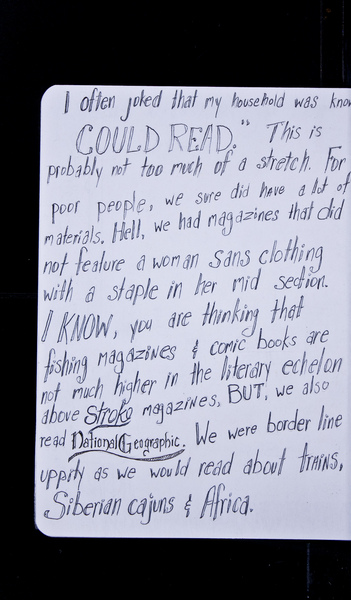 I often joked that my household was know
COULD READ." This is
probably not too much of a stretch. For
poor people, we sure did have a lot of
materials. Hell, we had magazines that did
not feature a woman sans clothing
with a staple in her mid section.
I KNOW, you are thinking that
fishing magazines & comic books are
not much higher in the literary echelon
above Stroke magazines, BUT, we also
read National Geographic. We were border line
uppity as we would read about trains,
Siberian cajuns & Africa.